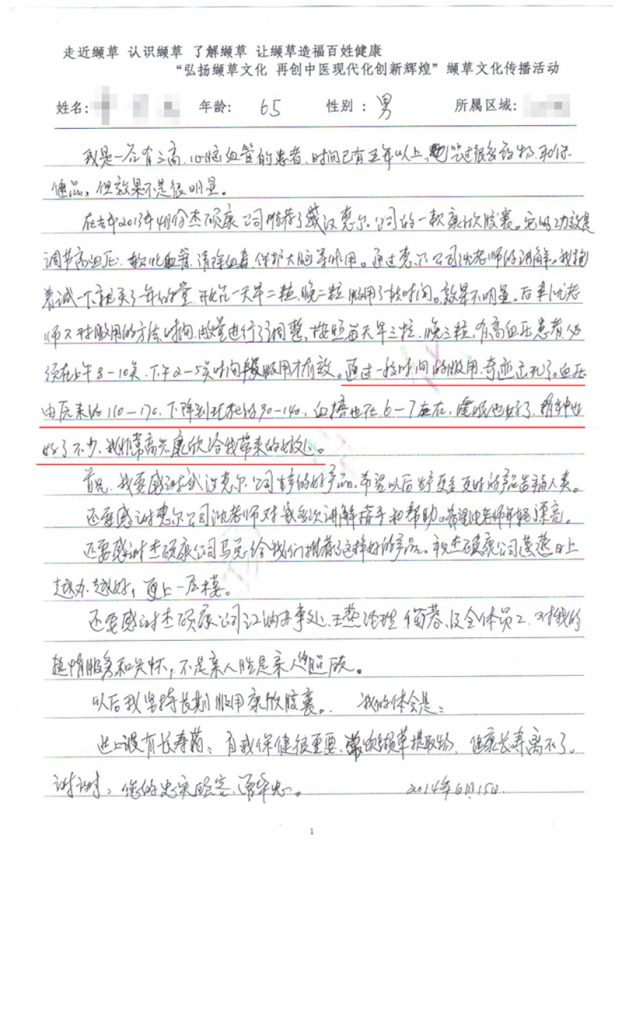 走近缬草 认识缬草 了解缬草 让缬草造福百姓健康
“弘扬缬草文化 再创中医现代化创新辉煌”缬草文化传播活动
姓名: 年龄: 65 性别: 男 所属区域:
我是一名有三高、心脑血管的患者,时间已有五年以上,吃过很多药物和保
健品,但效果不是很明显。
在去年2013年4月份杰硕康公司推荐了武汉惠尔公司的一款康欣胶囊。它的功效是
调节高血压、软化血管、清除血毒、保护大脑等作用。通过惠尔公司沈老师的讲解。我抱
着试一下就买了一年的量 开始一天早二粒,晚二粒 服用了一段时间。效果不明显。后来沈老
师又对服用的方法时间、剂量进行了调整,按照每天早三粒,晚三粒,有高血压患者必
须在上午8-10点,下午2-5点时间段服用才有效。通过一段时间的服用,奇迹出现了。血压
由原来的110-170,下降到现在的90-140,血糖也在6-7左右,睡眠也好了,精神也
好了不少,我非常高兴康欣给我带来的好处。
首先,我要感谢武汉惠尔公司生产的好产品,希望以后生产更多更好的产品造福人类。
还要感谢惠尔公司沈老师对我多次讲解指导和帮助。希望沈老师年轻漂亮。
还要感谢杰硕康公司马总给我们推荐了这样好的产品。祝杰硕康公司蒸蒸日上
越办越好,更上一层楼。
还要感谢杰硕康公司江纳办事处,王燕经理 及全体员工,对我的
热情服务和关怀,不是亲人胜是亲人。
以后我坚持长期服用康欣胶囊。 我的体会是:
世上没有长寿药;自我保健很重要,常吃缬草提取物,健康长寿离不了。
谢谢,您的忠实顾客, 2014年6月15日
1